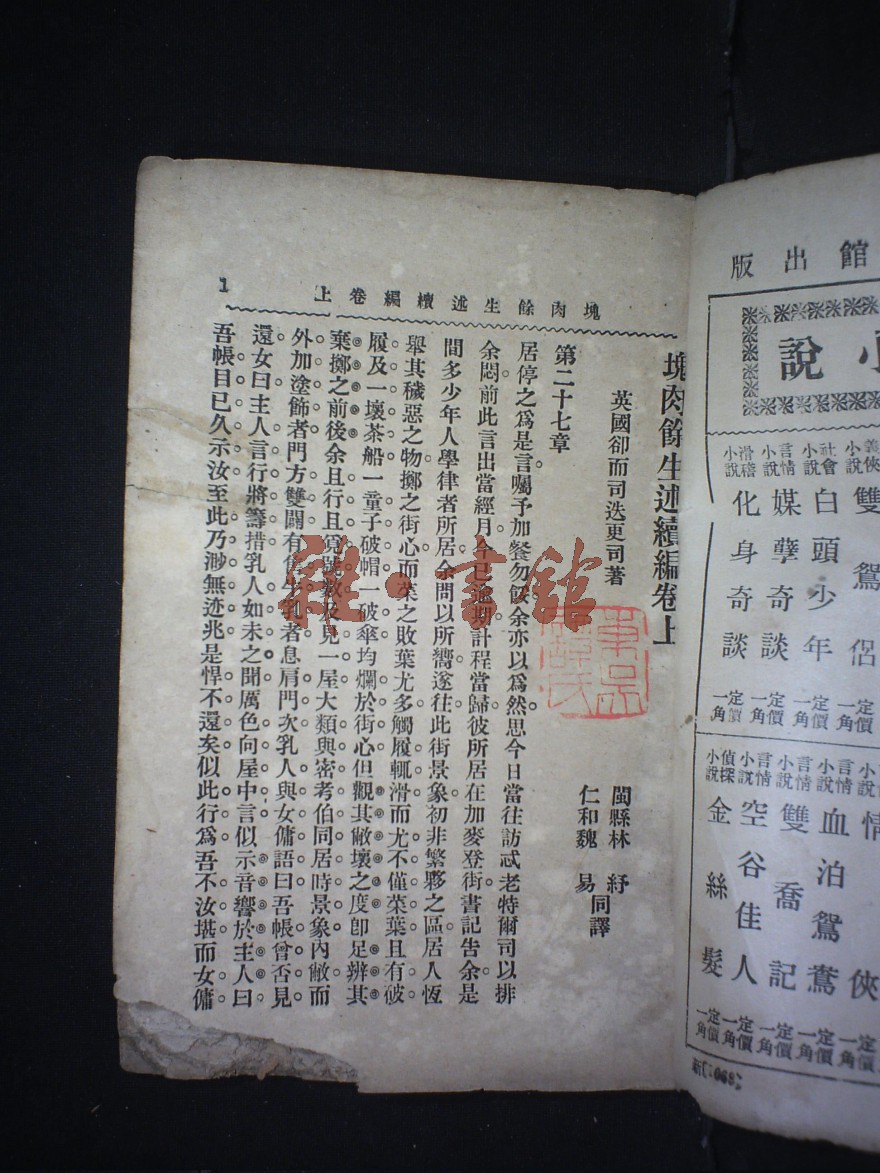 版出館
小說
義俠
雙鴛侶
定價一角
社會小說
白頭少年
定價一角
言情小說
媒孽奇談
定價一角
滑稽小說
化身奇談
定價一角
言情
情俠
定價一角
言情小說
血泊鴛鴦
定價一角
言情小說
雙喬記
定價一角
言情小說
空谷佳人
定價一角
偵探小說
金絲髮
定價一角
塊肉餘生述續編卷上
1
塊肉餘生述續編卷上
英國卻而司迭更司著
閩縣林紓
仁和魏易同譯
第二十七章
居停之爲是言。囑予加餐勿餒。余亦以爲然。思今日當往訪忒老特爾司以排
余悶。前此言出當經月。今已逾期。計程當歸。彼所居在加麥登街。書記告余。是
間多少年人學律者所居。余問以所嚮。遂往。此街景象初非繁夥之區。居人恆
舉其穢惡之物擲之街心。而菜之敗葉尤多。觸履輒滑。而尤不僅菜葉。且有破
履及一壞茶船。一童子破帽。一破傘。均爛於街心。但觀其敝壞之度。卽足辨其
棄擲之前後。余且行且覓號數。及見一屋。大類與密考伯同居時景象。內敝而
外加塗飾者。門方雙闢。有售牛乳者息肩門次。乳人與女傭語曰。吾帳曾否見
還。女曰。主人言行將籌措。乳人如未之聞。厲色向屋中言。似示音響於主人曰。
吾帳目已久示汝。至此乃渺無迹兆。是悍不還矣。似此行爲。吾不汝堪。而女傭
雜·書館